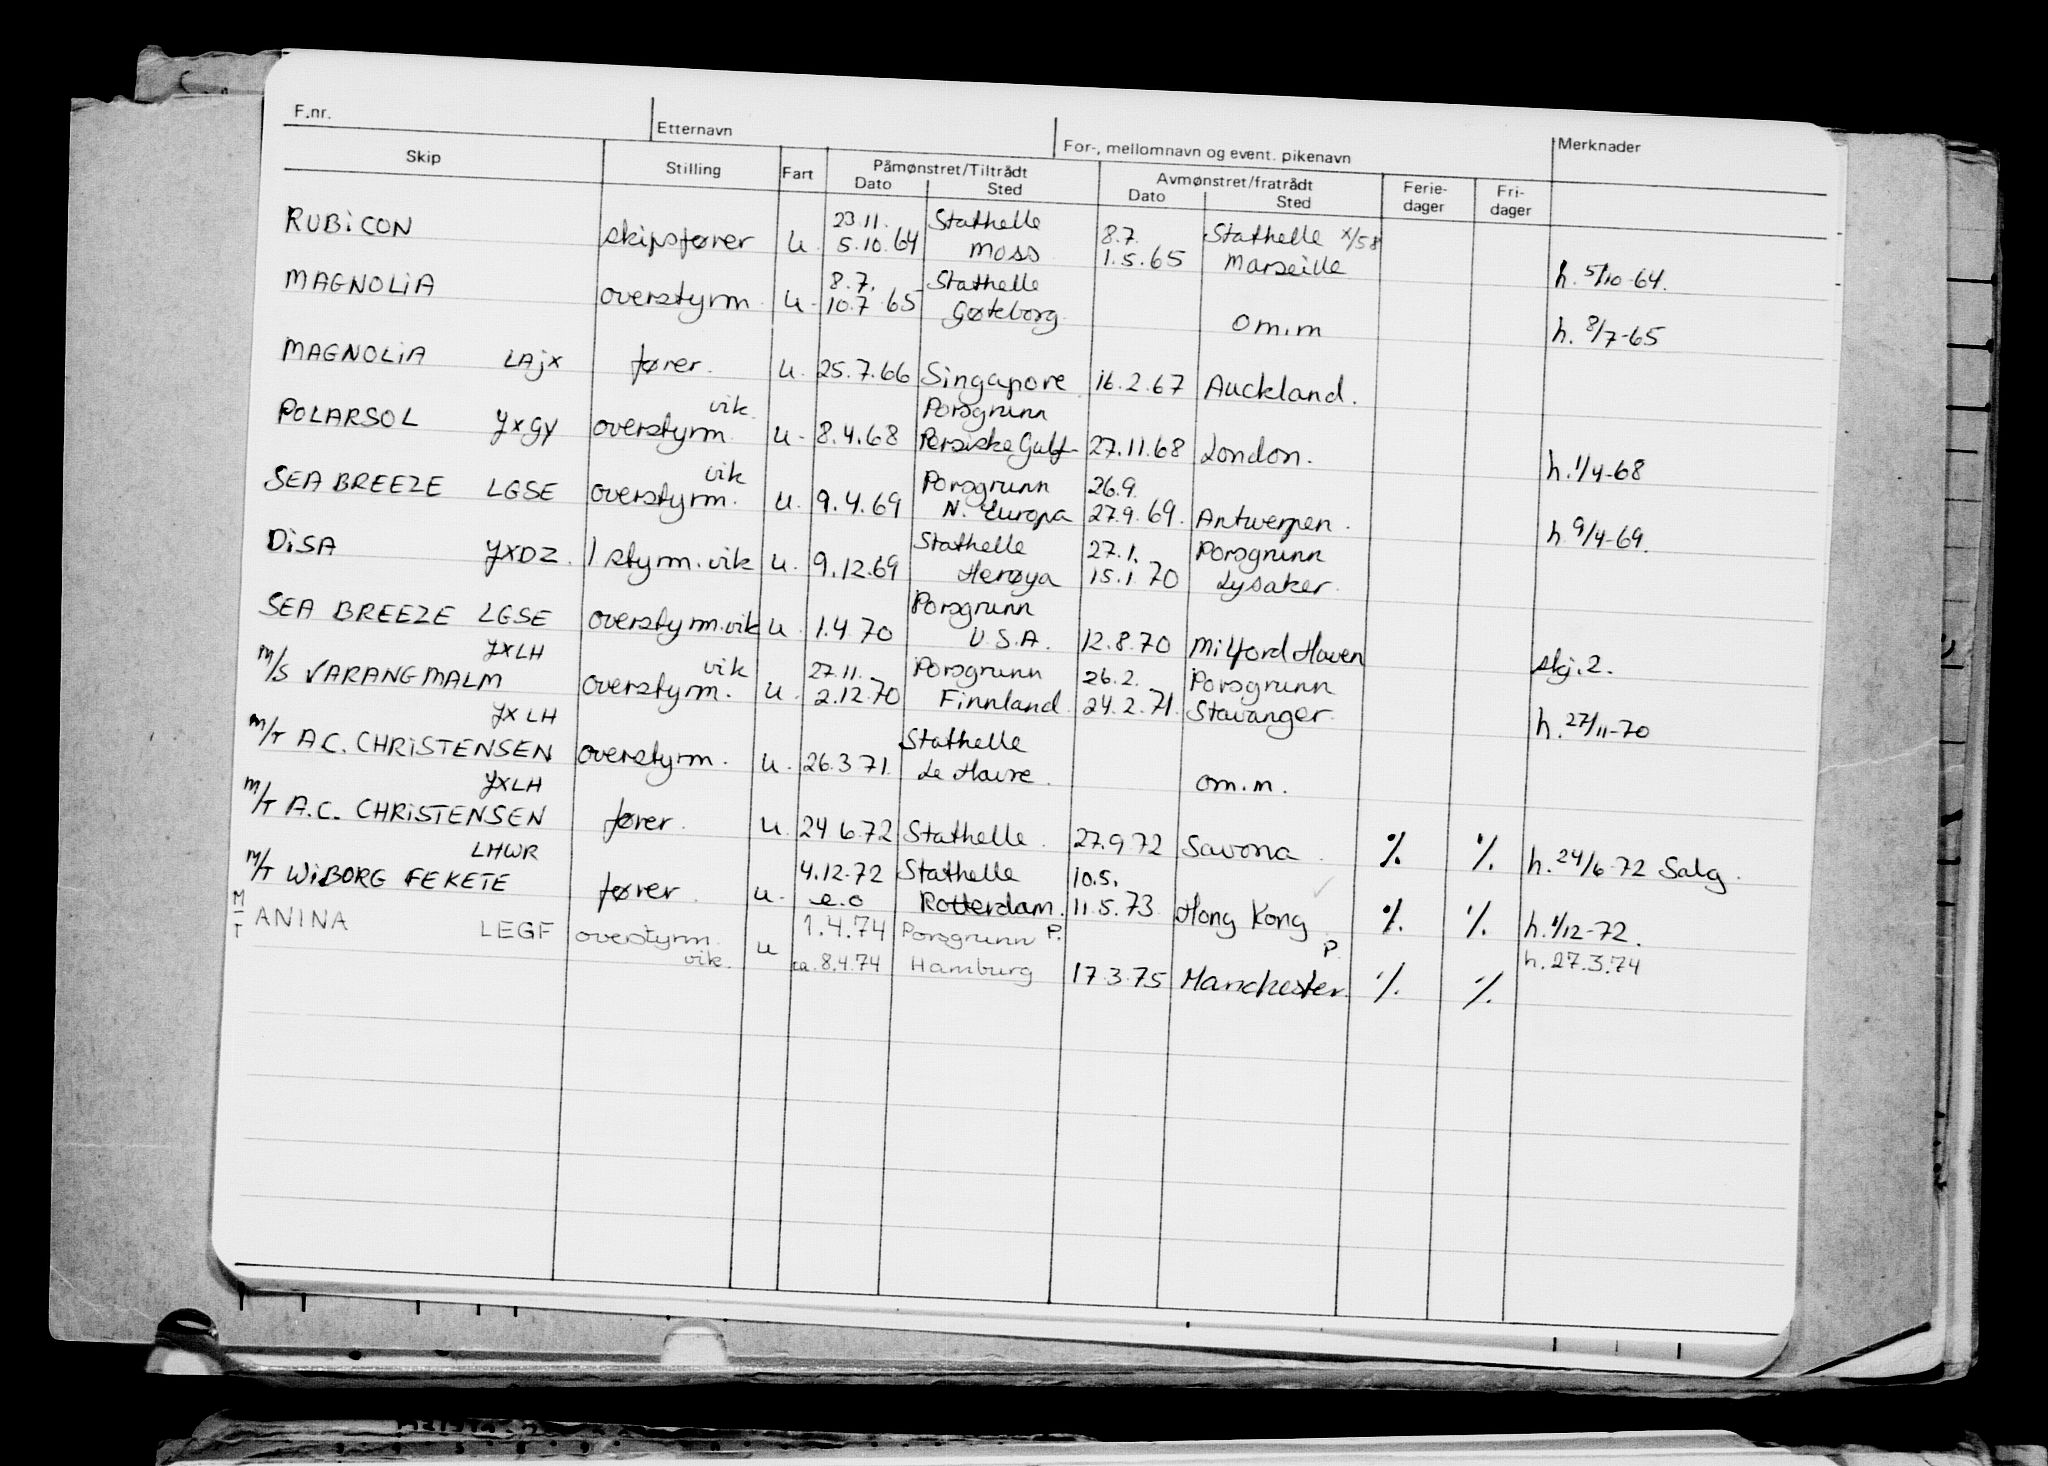 F.nr. Etternavn For-, mellomnavn og event. pikenavn Merknader
Skip Stilling Fart Påmønstret/Tiltrådt Avmønstret/fratrådt Ferie- Fri-
Dato Sted Dato Sted dager dager
RUBICON 23.11. Stathelle 8.7. Stathelle x/58
skipsfører u. 5.10.64 Moss 1.5.65 Marseille h. 5/10-64.
MAGNOLIA 8.7. Stathelle
overstyrm. u. 10.7.65 Gøteborg om.m h. 8/7-65
MAGNOLIA LAJX fører. u. 25.7.66 Singapore 16.2.67 Auckland.
vik. Porsgrunn
POLARSOL JXGY overstyrm. u. 8.4.68 Persiske Gulf 27.11.68 London. h. 1/4-68
vik Porsgrunn 26.9.
SEA BREEZE LGSE overstyrm. u. 9.4.69 N. Europa 27.9.69. Antwerpen. h 9/4-69.
Stathelle 27.1. Porsgrunn
DISA JXDZ. 1 styrm. vik u. 9.12.69 Herøya 15.1.70 Lysaker.
Porsgrunn
SEA BREEZE LGSE overstyrm.vik u. 1.4.70 U.S.A. 12.8.70 Milford Haven skj.2.
JXLH vik 27.11. Porsgrunn 26.2. Porsgrunn
M/S VARANGMALM overstyrm. u. 2.12.70 Finnland 24.2.71. Stavanger. h. 27/11-70
JXLH Stathelle
M/T A.C. CHRISTENSEN overstyrm. u. 26.3.71. Le Havre. om.m.
JXLH
M/T A.C. CHRISTENSEN fører. u. 24.6.72 Stathelle. 27.9.72 Savona. % % h. 24/6-72 Salg.
LHWR 4.12.72 Stathelle 10.5.
M/T WIBORG FEKETE fører. u. e.o Rotterdam. 11.5.73 Hong Kong % % h. 1/12-72.
M/T ANINA LEGF overstyrm. u 1.4.74 Porsgrunn P. P. h. 27.3.74
vik. ca. 8.4.74 Hamburg 17.3.75 Manchester. % %